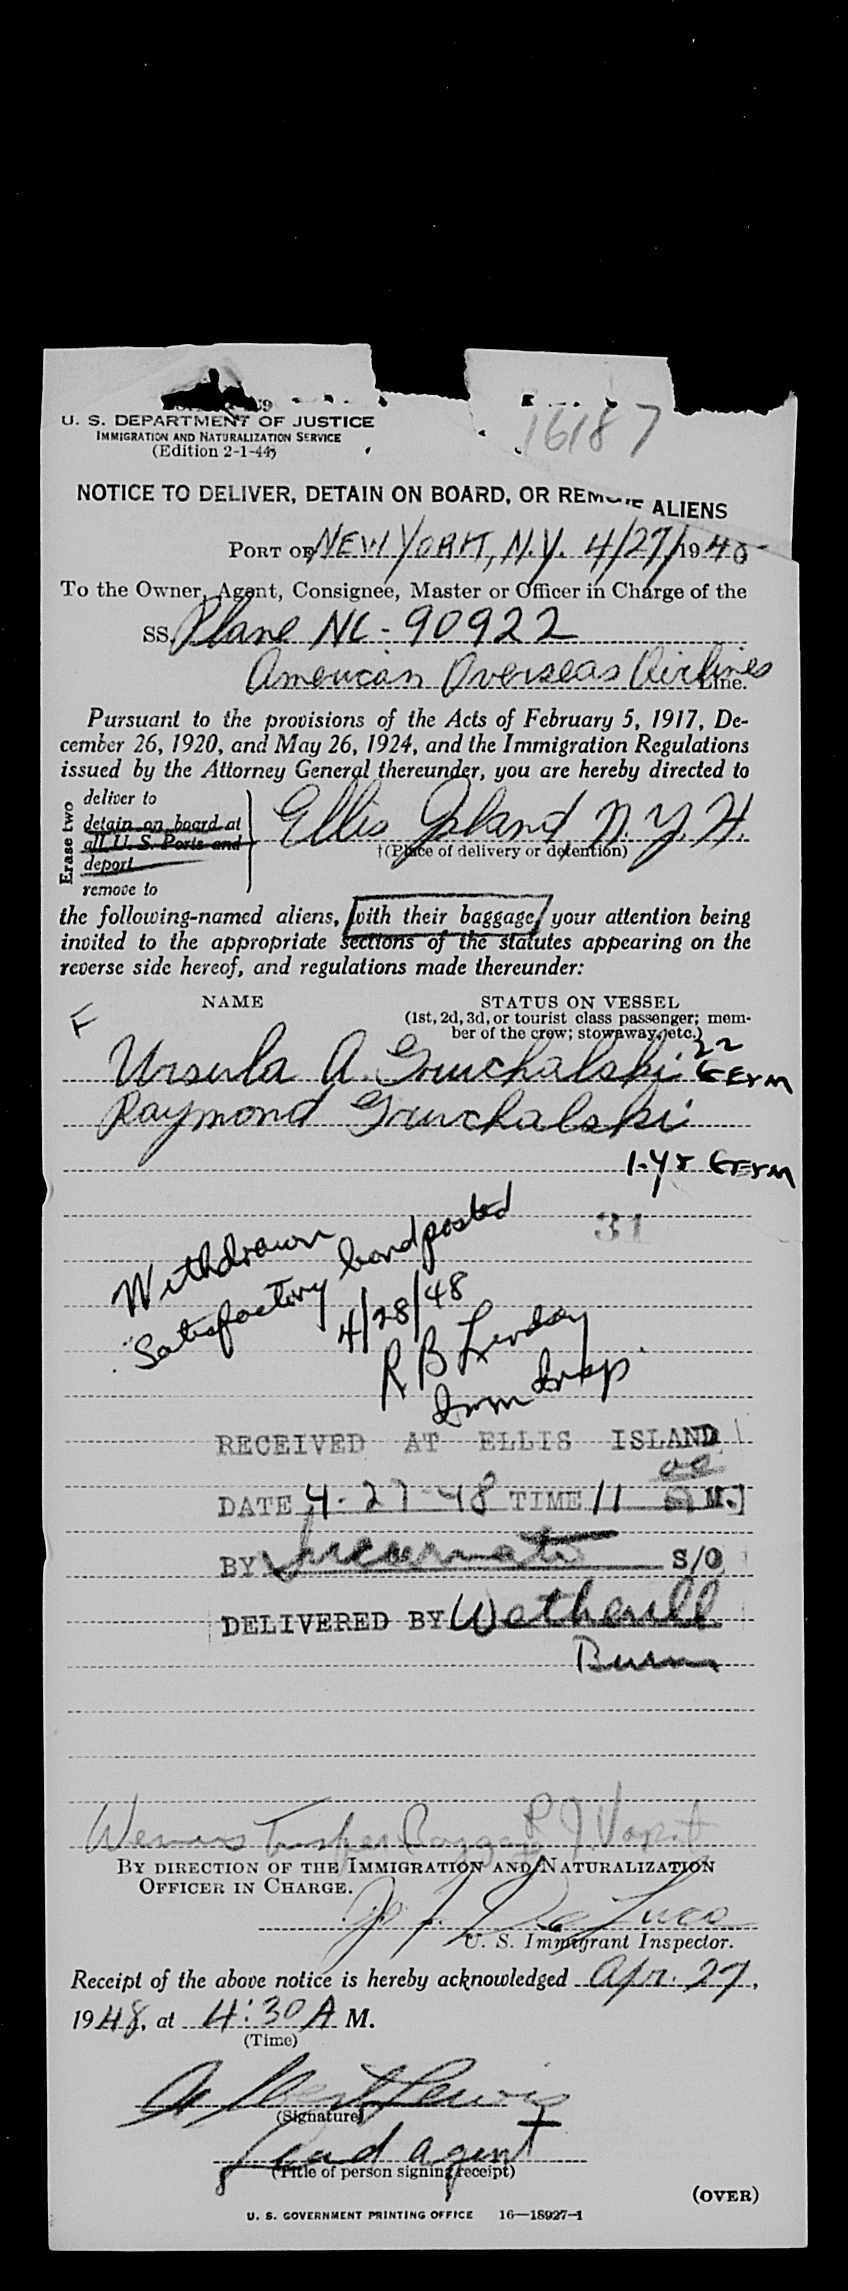 16187
U. S. DEPARTMENT OF JUSTICE
IMMIGRATION AND NATURALIZATION SERVICE
(Edition 2-1-44)
NOTICE TO DELIVER, DETAIN ON BOARD, OR REMOVE ALIENS
PORT OF NEW YORK, N.Y. 4/27/1948
To the Owner, Agent, Consignee, Master or Officer in Charge of the
SS. Plane NC-90922
American Overseas Airlines Line.
Pursuant to the provisions of the Acts of February 5, 1917, De-
cember 26, 1920, and May 26, 1924, and the Immigration Regulations
issued by the Attorney General thereunder, you are hereby directed to
Erase two
deliver to
detain on board at
all U. S. Ports and
deport
remove to
Ellis Island N.Y.H.
†(Place of delivery or detention)
the following-named aliens, with their baggage, your attention being
invited to the appropriate sections of the statutes appearing on the
reverse side hereof, and regulations made thereunder:
NAME STATUS ON VESSEL
(1st, 2d, 3d, or tourist class passenger; mem-
ber of the crew; stowaway, etc.)
F
Ursula A. Gruchalski 22 Germ
Raymond Gruchalski
1-yr Germ
31
Withdrawn
Satisfactory bond posted
4/28/48
R B Lindsay
Imm Insp.
RECEIVED AT ELLIS ISLAND
DATE 4-27-48 TIME 11 00 A M.
BY Incarnato S/O
DELIVERED BY Wetherill
Burns
BY DIRECTION OF THE IMMIGRATION AND NATURALIZATION
OFFICER IN CHARGE.
De Luca
U. S. Immigrant Inspector.
Receipt of the above notice is hereby acknowledged Apr. 27,
1948, at 4:30 A M.
(Time)
Albert Lewis
(Signature)
Lead agent
(Title of person signing receipt)
(OVER)
U. S. GOVERNMENT PRINTING OFFICE 16—18927-1